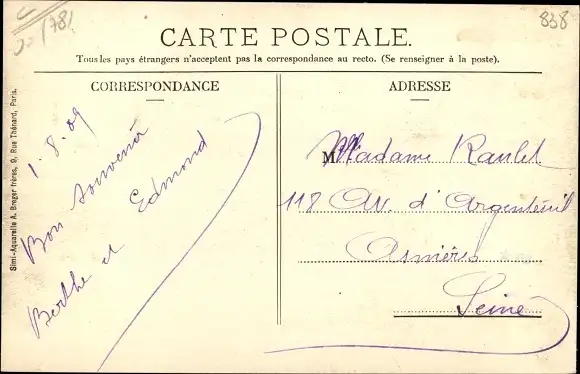 838
CARTE POSTALE.
Tous les pays étrangers n'acceptent pas la correspondance au recto. (Se renseigner à la poste).
CORRESPONDANCE
1.8.09
Bon souvenir
Berthe et Edmond
ADRESSE
Madame Raulet
118 Av. d'Argenteuil
Asnières
Seine
Simi-Aquarelle A. Breger frères, 9, Rue Thénard, Paris.